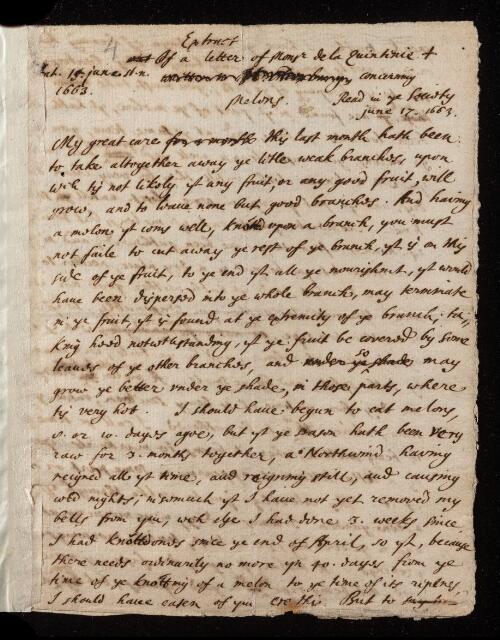 4
Extract
Of a letter of Monsr de la Quintinie +
14. june st. n. concerning
1663.
Melons. Read in ye Society
june 17. 1663.
My great care this last month hath been
to take altogether away ye litle weak branches, upon
wch ti's not likely yt any fruit, or any good fruit, will
grow, and to leave none but good branches. And having
a melon yt coms well, knotted upon a branch, you must
not faile to cut away ye rest of ye branch, yt is on this
side of ye fruit, to ye end yt all ye nourishmt, yt would
have been dispersed into ye whole branch, may terminate
in ye fruit, yt is found at ye extremity of ye branch; ta-
king heed notwthstanding, yt ye fruit be covered by some
leaves of ye other branches, and under ye shade so may
grow ye better under ye shade, in those parts, where
ti's very hot. I should have begun to eat melons,
8. or 10. dayes agoe, but yt ye season hath been very
raw for 3. months together, a Northwind having
reigned all yt time, and reigning still, and causing
cold nights; insomuch yt I have not yet removed my
bells from ym, wch else I had done 3. weeks since.
I had knotted ones since ye end of April, so yt, because
there needs ordinarily no more yn 40. dayes from ye
time of ye knotting of a melon to ye time of its ripenes,
I should have eaten of ym ere this. But to